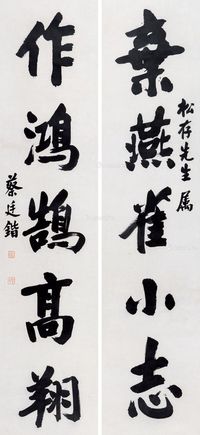 棄燕雀小志
松存先生属
作鴻鵠高翔
蔡廷鍇